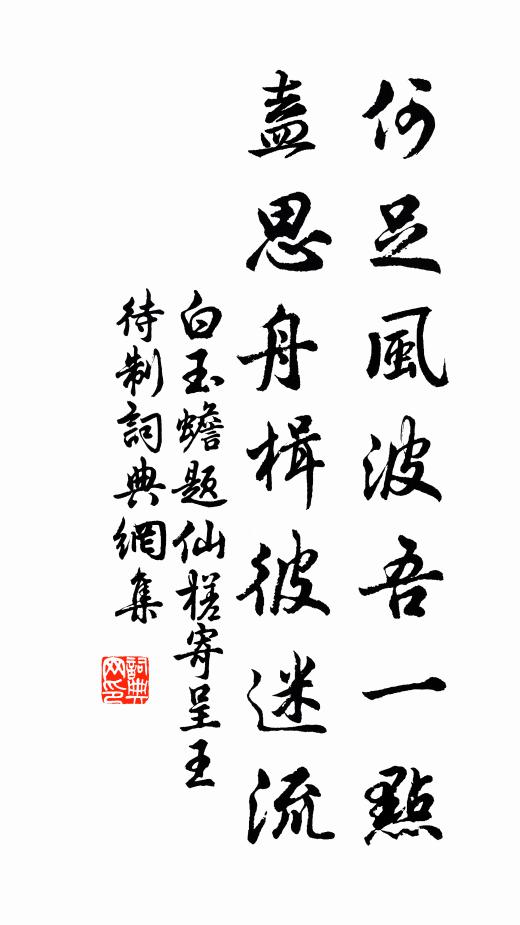 何足風波吾一點
盍思舟楫彼迷流
白玉蟾題仙槎寄呈王
待制詞典網集
詞典
网印